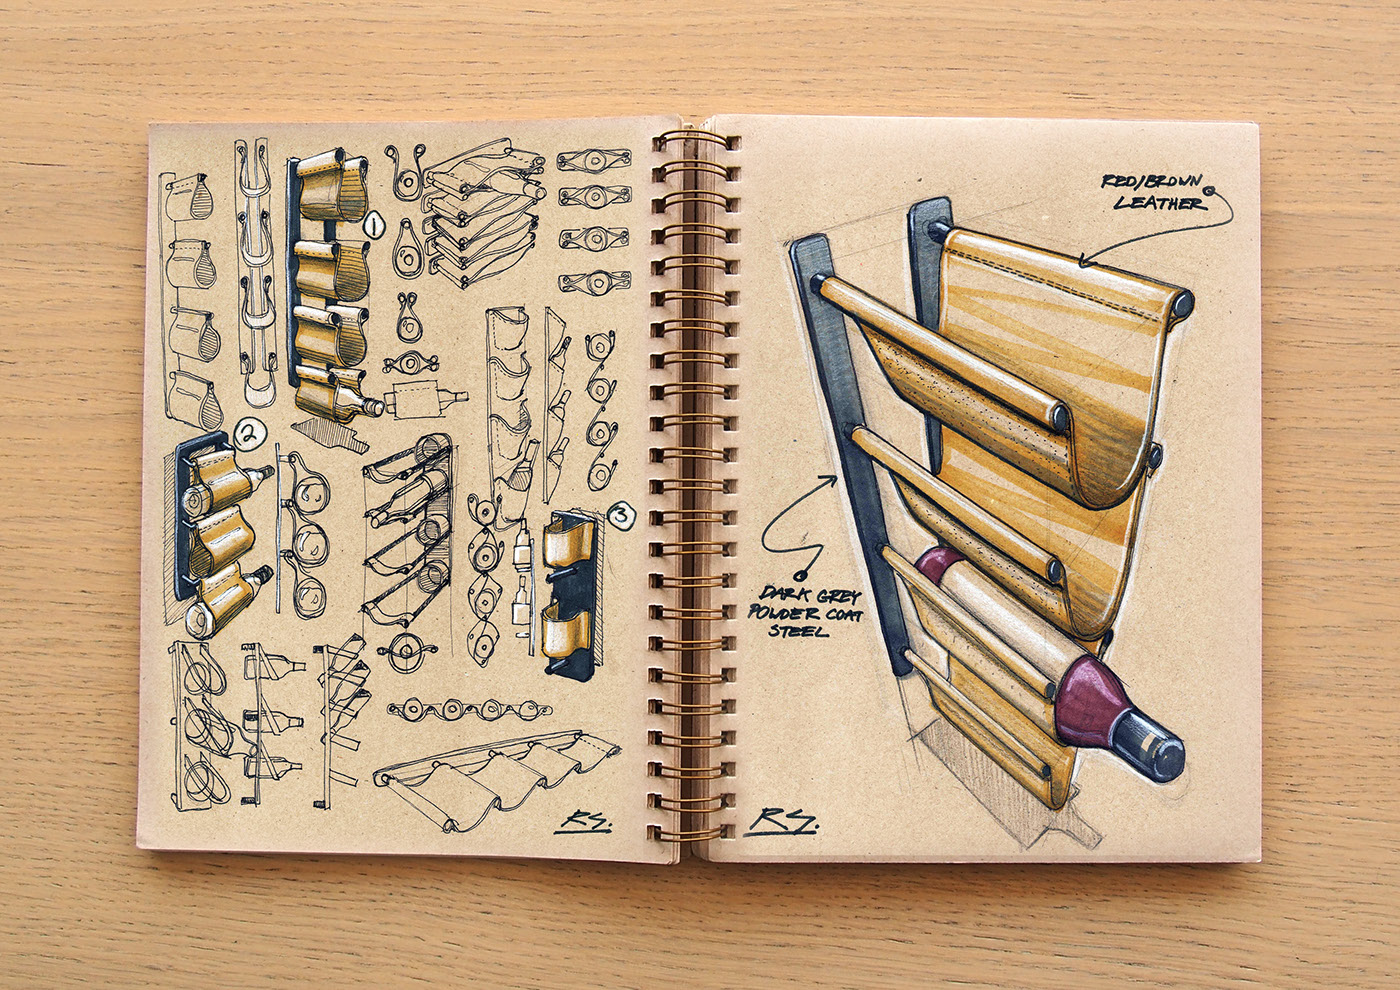 1
2
3
RS.
RED/BROWN
LEATHER
DARK GREY
POWDER COAT
STEEL
RS.